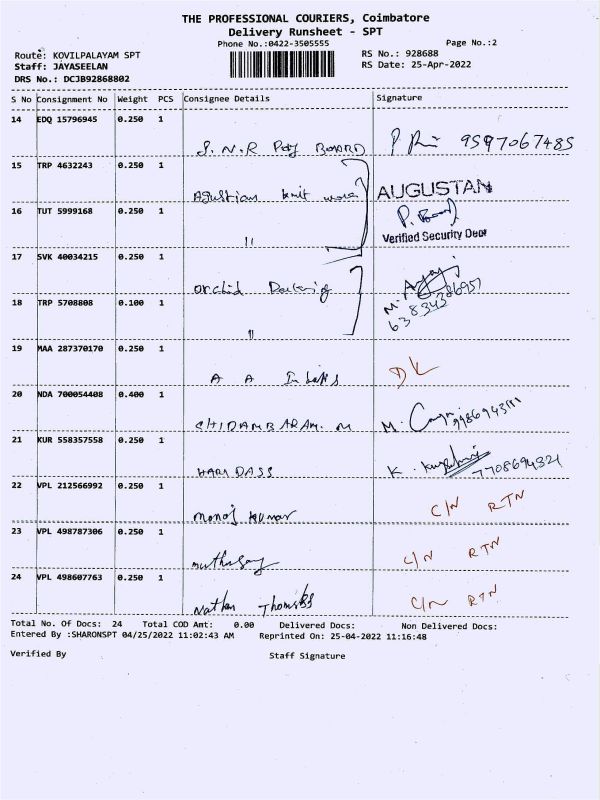 THE PROFESSIONAL COURIERS, Coimbatore
Delivery Runsheet - SPT
Phone No.:0422-3505555
Page No.:2
Route: KOVILPALAYAM SPT
RS No.: 928688
Staff: JAYASEELAN
RS Date: 25-Apr-2022
DRS No.: DCJB92868802
S No Consignment No Weight PCS Consignee Details Signature
14 EDQ 15796945 0.250 1
BOARD 9597067485
15 TRP 4632243 0.250 1
knit AUGUSTAN
16 TUT 5999168 0.250 1
"
Verified Security Dept
17 SVK 40034215 0.250 1
orchid
18 TRP 5708808 0.100 1
"
19 MAA 287370170 0.250 1
A A DL
20 NDA 700054408 0.400 1
CHIDAMBARAM. M M.
21 KUR 558357558 0.250 1
HARI DASS K. 7708694321
22 VPL 212566992 0.250 1
manoj kumar C/N RTN
23 VPL 498787306 0.250 1
muthusamy C/N RTN
24 VPL 498607763 0.250 1
Nathan C/N RTN
Total No. Of Docs: 24 Total COD Amt: 0.00 Delivered Docs: Non Delivered Docs:
Entered By :SHARONSPT 04/25/2022 11:02:43 AM Reprinted On: 25-04-2022 11:16:48
Verified By Staff Signature